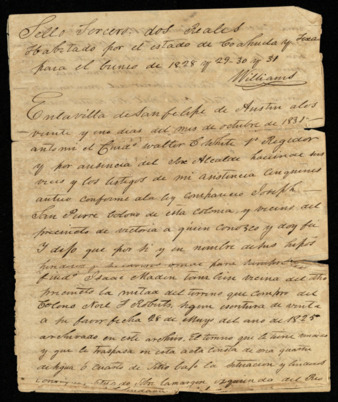 Sello Tercero dos Reales
Habitado por el estado de Coahuila y Texas
para el bienio de 1828 y 29-30 y 31
Williams
En la villa de San felipe de Austin a los
veinte y uno dias del mes de octubre de 1831
ante mi el Ciud.º Walter C White 1º Regidor
y por ausencia del Sor Alcalde haciendo sus
veces y los testigos de mi asistencia con quienes
autuo conforme a la ley comparecio Joseph
San Pierre Colono de esta colonia y vecino del
precincto de victoria a quien conozco y doy fe
I dijo que por si y en nombre de sus hijos
Isaac Maden tambien vecino del dho
precincto la mitad del terreno que compro del
Colono Noel F Roberts segun escritura de venta
a su favor fecha 28 de Mayo del ano de 1825
archivada en este archivo. El terreno que le tiene
y que le traspasa en esta acta consta de una quarta
situacion y